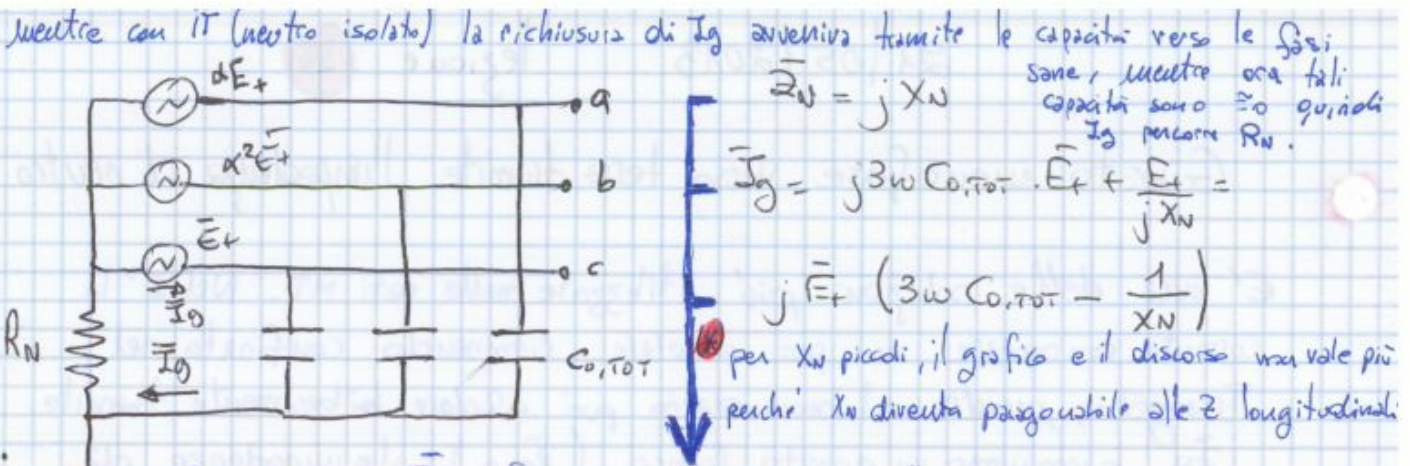 mentre con IT (neutro isolato) la richiusura di Ig avveniva tramite le capacità verso le fasi
sane, mentre ora tali
capacità sono ≅0 quindi
Ig percorre RN.
αE+
a
Z̄N = j XN
α²Ē+
b
Īg = j3ω C0,TOT · Ē+ + E+ / j XN =
Ē+
c
j Ē+ (3ω C0,TOT - 1 / XN)
Īg
RN
Īg
C0,TOT
(*) per XN piccoli, il grafico e il discorso non vale più
perché XN diventa paragonabile alle Z longitudinali